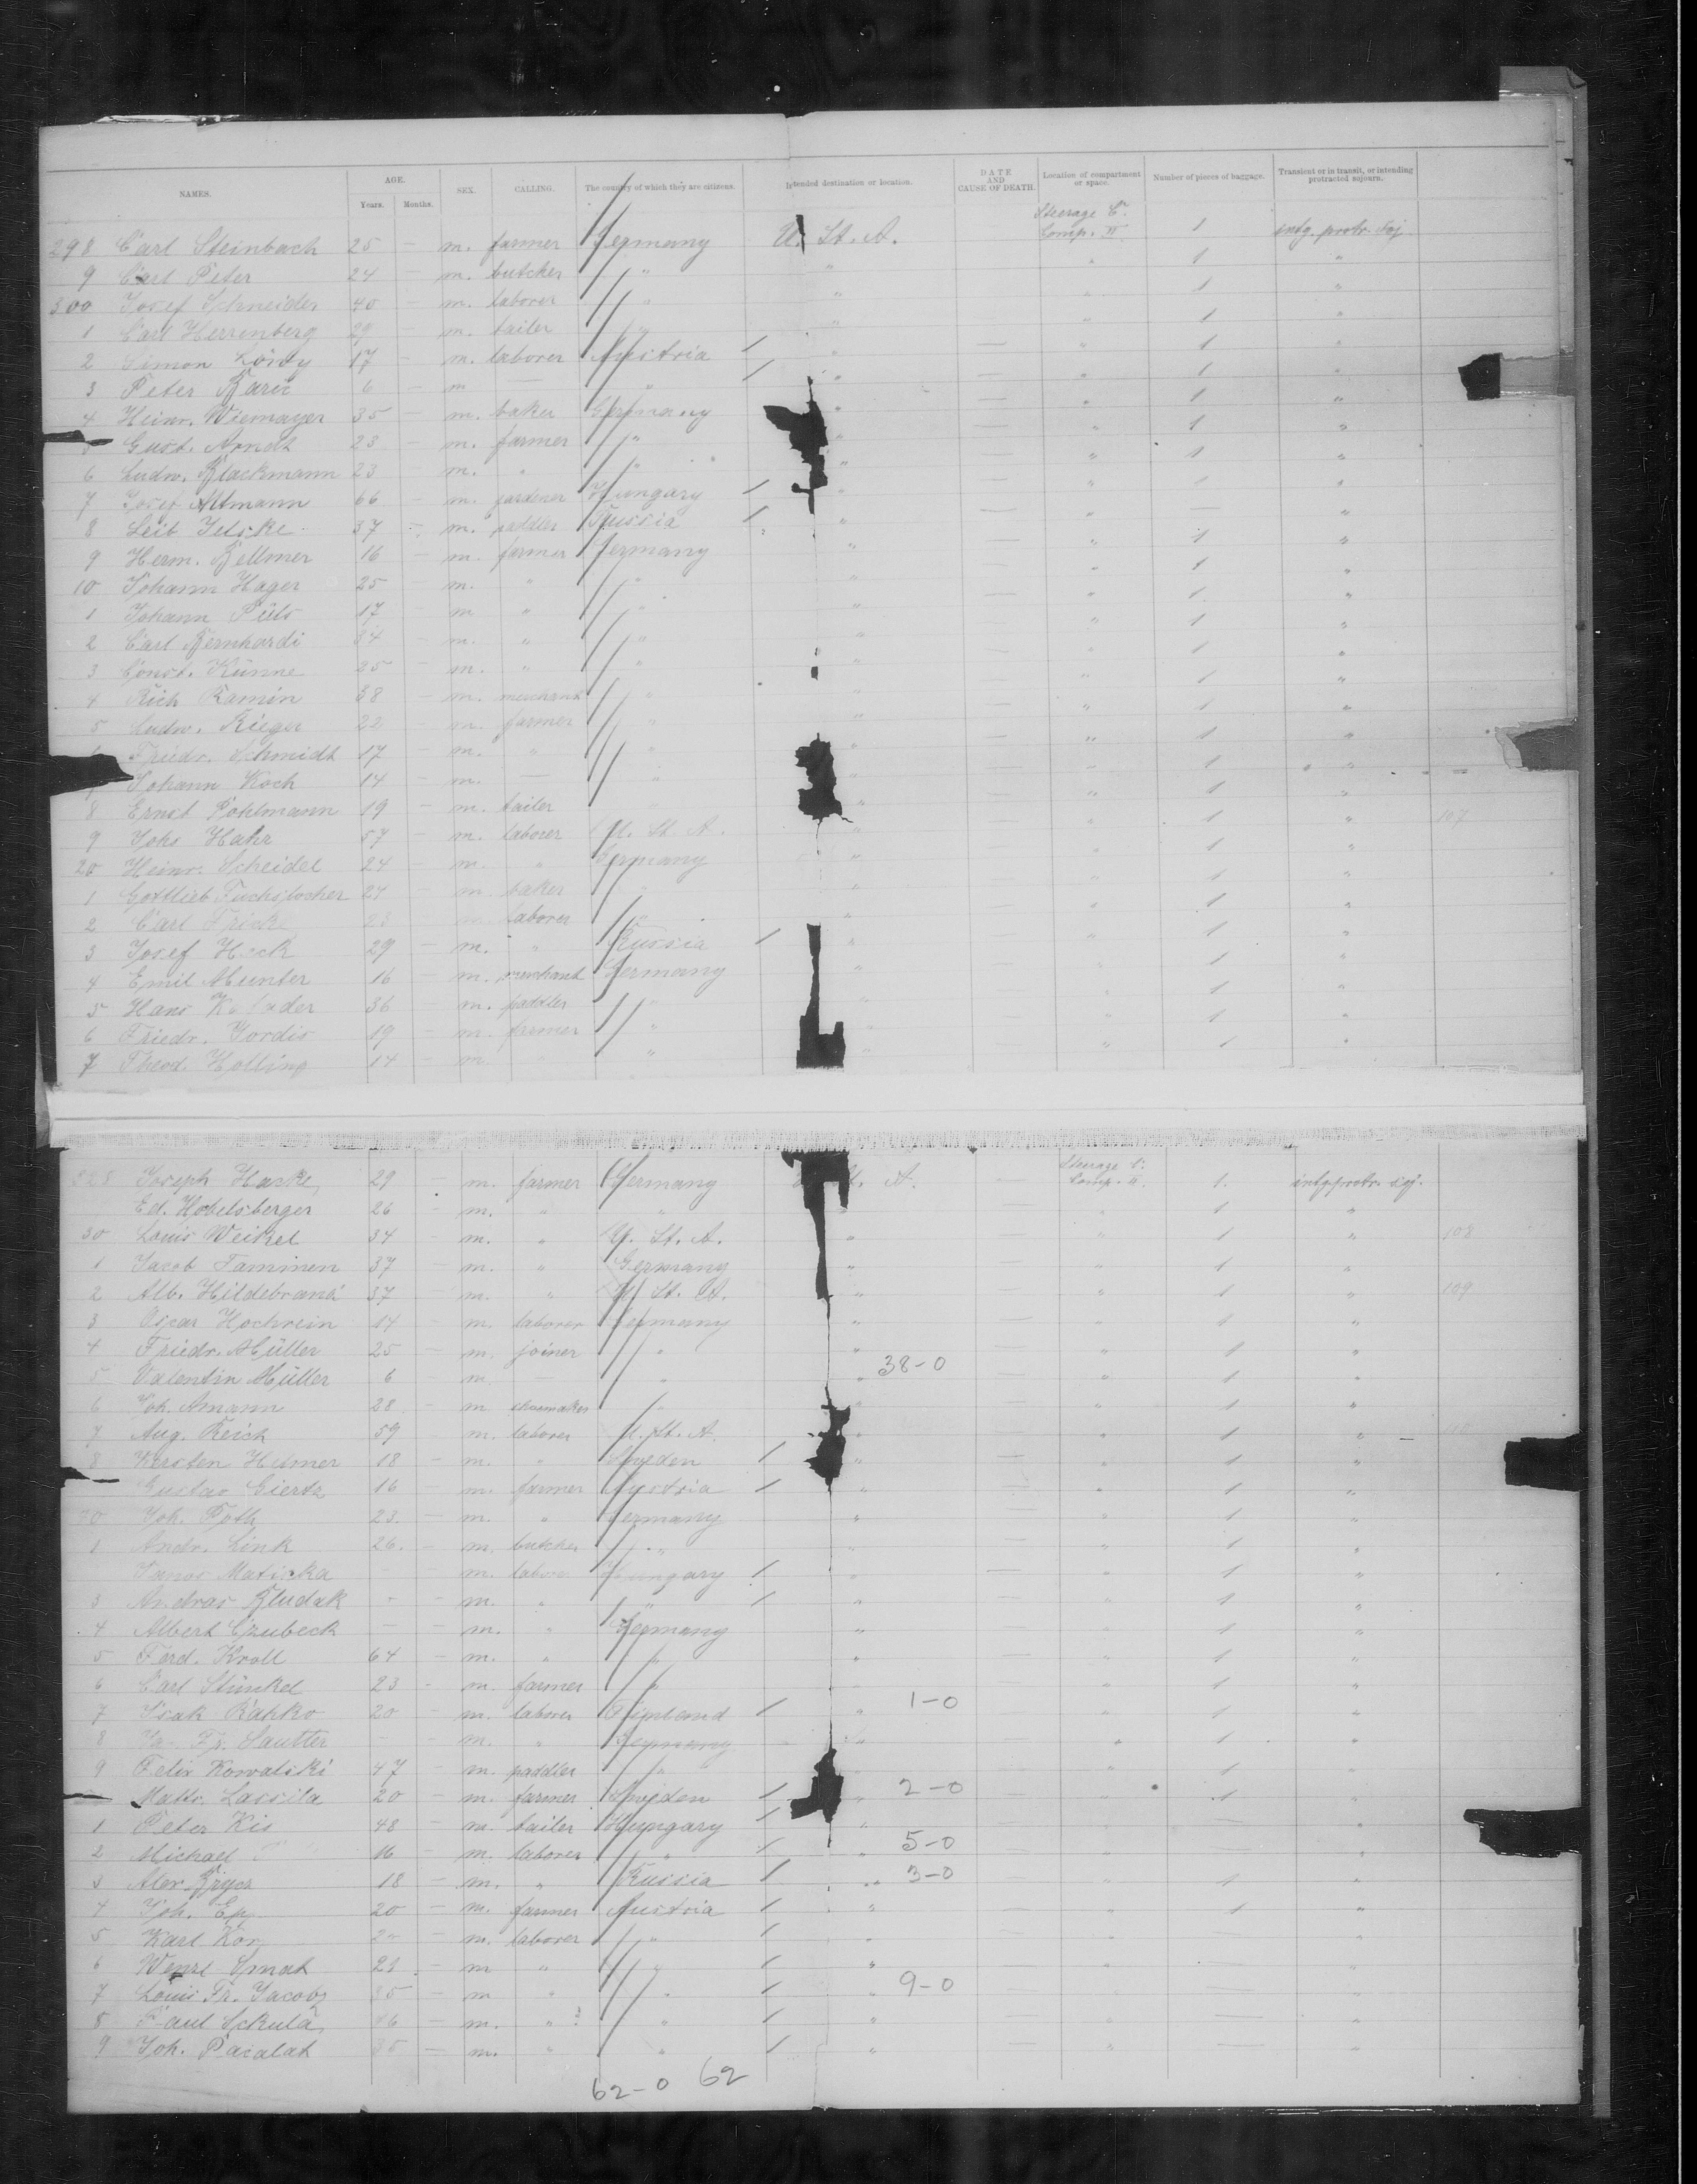 NAMES. AGE. Years. Months. SEX. CALLING. The country of which they are citizens. Intended destination or location. DATE AND CAUSE OF DEATH. Location of compartment or space. Number of pieces of baggage. Transient or in transit, or intending protracted sojourn.
298 Carl Steinbach 25 — m. farmer Germany U. St. A. Steerage C. Comp. II. 1 intg. protr. soj.
9 Carl Peter 24 — m. butcher " " " 1 "
300 Josef Schneider 40 — m. laborer " " " 1 "
1 Carl Herrenberg 29 — m. tailer " " " 1 "
2 Simon 17 — m. laborer Austria / " — " 1 "
3 Peter 6 — m — " / " — " 1 "
4 Heinr. Wiemayer 35 — m. baker Germany " — " 1 "
5 Gust. Arndt 23 — m. farmer " " — " 1 "
6 Ludw. Blackmann 23 — m. " " " — " 1 "
7 Josef Altmann 66 — m. gardener Hungary / " — " 1 "
8 Leib 37 — m. paddler Russia / " — " — "
9 Herm. Bellmer 16 — m. farmer Germany " — " 1 "
10 Johann Hager 25 m. " " " — " 1 "
1 Johann Püls 17 m " " " — " 1 "
2 Carl Bernhardi 34 — m. " " " — " 1 "
3 Const. Künne 25 — m. " " " — " 1 "
4 Rich Ramin 38 — m. merchant " " — " 1 "
5 Ludw. Rieger 22 — m. farmer " " — " 1 "
Friedr. Schmidt 17 — m. " " " — " 1 "
Johann Koch 14 — m. — " " — " 1 "
8 Ernst Pohlmann 19 — m. tailer " " — " 1 "
9 Johs Hahr 57 — m. laborer U. St. A. " — " 1 " 107
20 Heinr. Scheidel 24 — m. " Germany " — " 1 "
1 Gottlieb 24 — m. baker " " — " 1 "
2 Carl Fricke 23 m. laborer " " — " 1 "
3 Josef Heck 29 — m. " Russia / " — " 1 "
4 Emil Munter 16 — m. merchant Germany " — " 1 "
5 Hans 36 — m. paddler " " — " 1 "
6 Friedr. Jordis 19 — m. farmer " " — " 1 "
7 Theod. Holling 14 — m. " " " — " 1 "
328 Joseph Haske 29 — m. farmer Germany St. A. — Steerage C. Comp. II. 1. intg protr. soj.
Ed. Hobelsberger 26 — m. " " " — " 1 "
30 Louis Weikel 34 — m. " U. St. A. " — " 1 " 108
1 Jacob Taminen 37 — m. " Germany " — " 1 "
2 Alb. Hildebrand 37 — m. " U. St. A. " — " 1 " 109
3 Oscar Hochrein 14 — m. laborer Germany " — " 1 "
4 Friedr. Müller 25 — m. joiner " " — " 1 "
5 Valentin Müller 6 — m. — " " 38-0 — " 1 "
6 Joh. Amann 28 — m. shoemaker " " — " 1 "
7 Aug. Reich 59 — m. laborer U. St. A. " — " 1 "
8 Karsten Helmer 18 — m. " Sweden / " — " 1 "
Gustav Giertz 16 — m. farmer Austria / " — " 1 "
Joh. Poth 23. — m. " Germany " — " 1 "
1 Andr. Link 26. — m. butcher " " — " 1 "
Janos Maticka — — m. labore Hungary / " — " 1 "
3 Andras Kludak — — m. " " / " — " 1 "
4 Albert Czubeck — — m. " Germany " — " 1 "
5 Ferd. Kroll 64 — m. " " " — " 1 "
6 Carl Stünkel 23 — m. farmer " — " 1 "
7 Isak Rahko 20 — m. laborer Finland / " 1-0 " 1 "
8 Fr. Sautter — — m. " Germany " " 1 "
9 Felix Kowalski 47 — m. paddler " " — " 1 "
Matts. Lassila 20 — m. farmer Sweden / " 2-0 — " 1 "
1 Peter Kis 48 — m. tailer Hungary / " — " — "
2 Michael 16 — m. laborer " / " 5-0 — " — "
3 Alex. 18 — m. " Russia / " 3-0 — " 1 "
4 Joh. 20 — m. farmer Austria / " — " 1 "
5 Karl m. laborer " / " — " — "
6 Wenzl 23 — m " " / " — " — "
7 Louis Fr. Jacoby 35 — m " " / " 9-0 — " — "
8 Paul Sckula 26 — m. " " / " — " — "
9 Joh. Pasalat 35 — m. " " / " — " — "
62-0 62